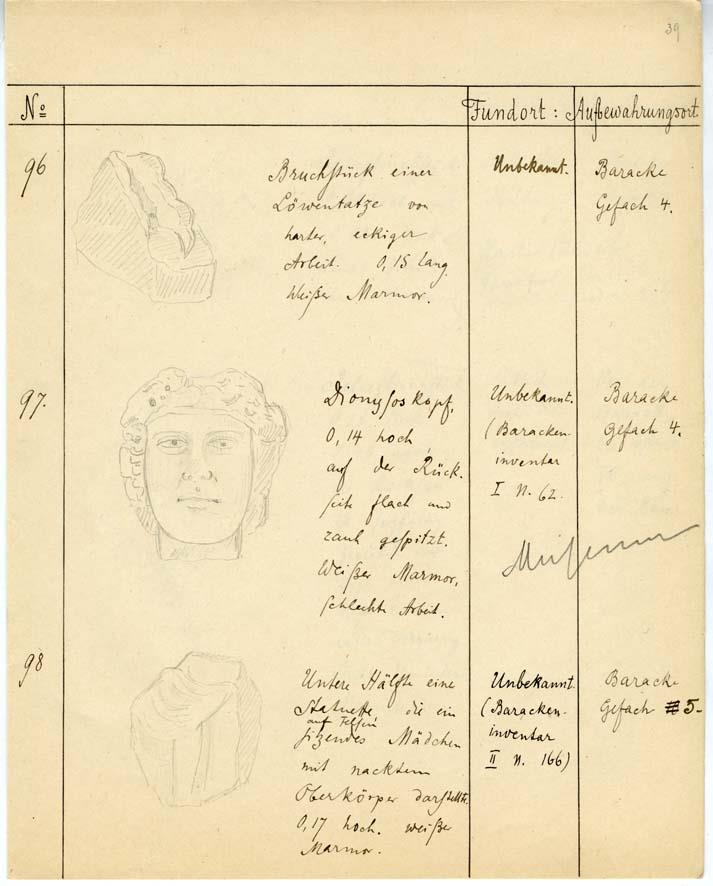 39
No
Fundort:
Aufbewahrungsort
96
Bruchstück einer
Löwentatze von
harter, eckiger
Arbeit. 0,15 lang.
Weißer Marmor.
Unbekannt.
Baracke
Gefach 4.
97.
Dionysoskopf,
0,14 hoch
auf der Rück-
seite flach und
rauh gespitzt.
Weißer Marmor,
schlechte Arbeit.
Unbekannt.
(Baracken-
inventar
I n. 62.
Baracke
Gefach 4.
Museum
98
Untere Hälfte eine
Statuette die ein
auf Felsen
sitzendes Mädchen
mit nacktem
Oberkörper darstellte.
0,17 hoch. weißer
Marmor.
Unbekannt.
(Baracken-
inventar
II n. 166)
Baracke
Gefach 5.